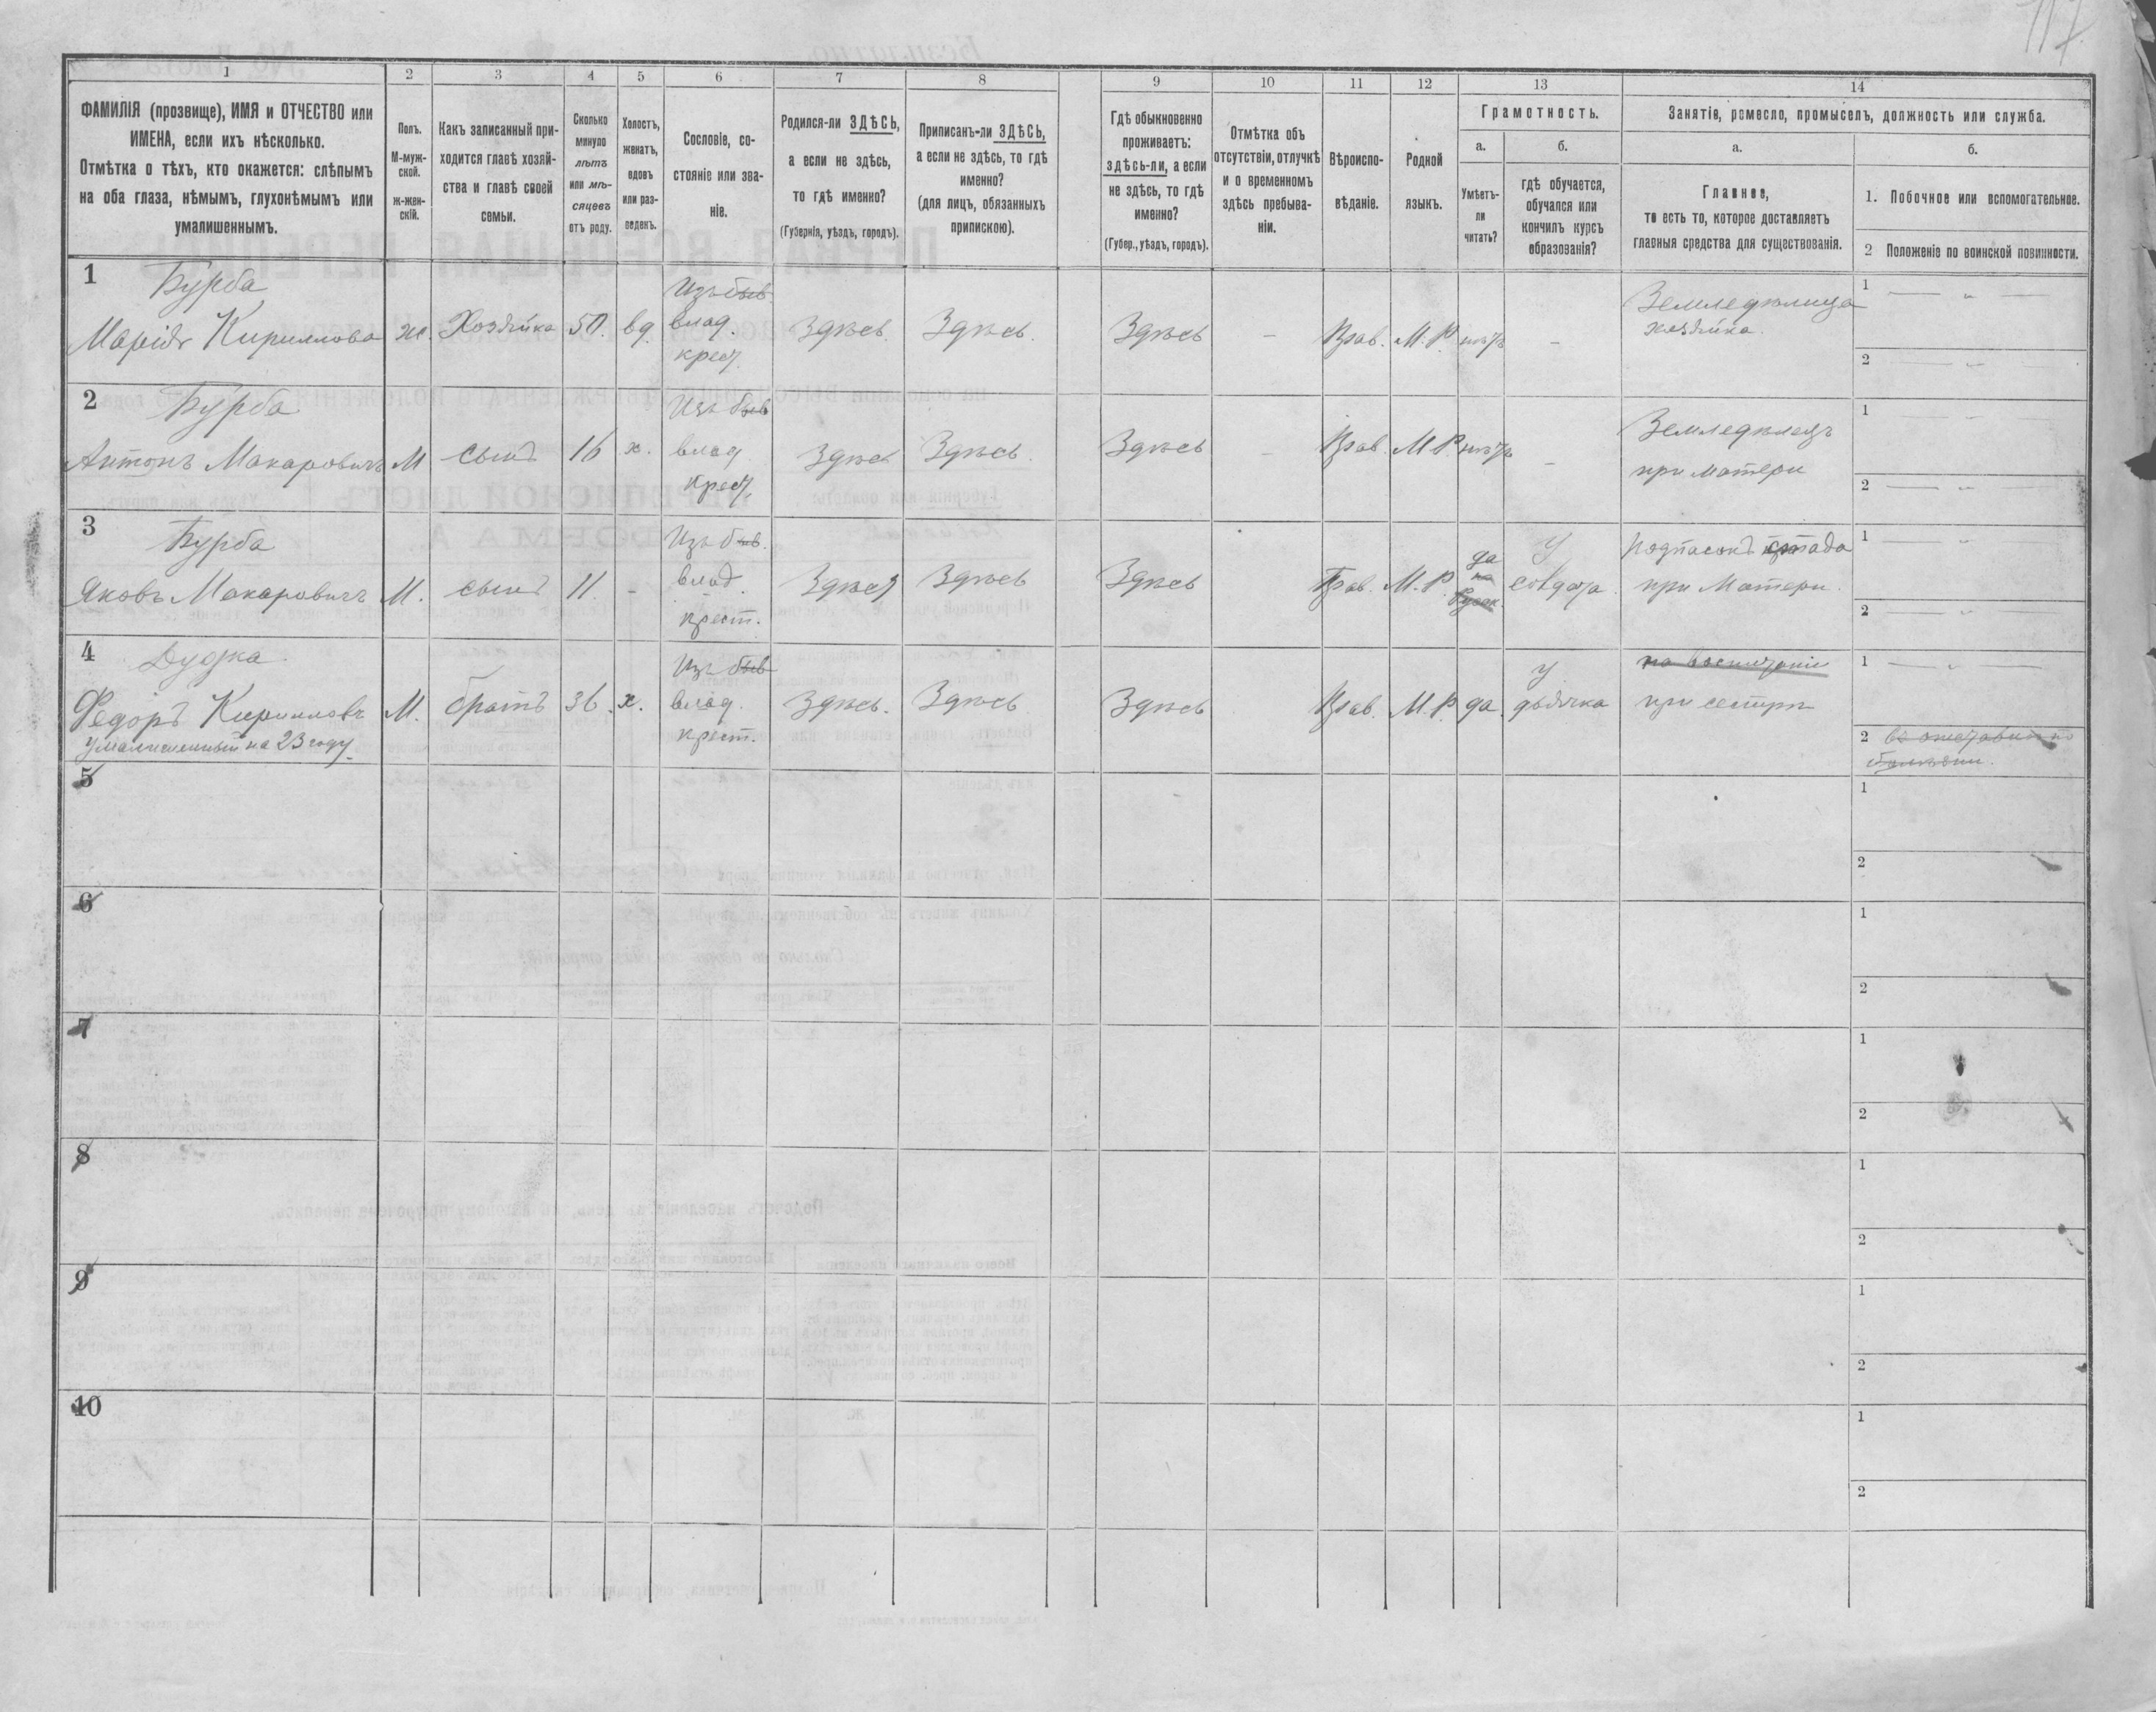 117
1
2
3
4
5
6
7
8
9
10
11
12
13
14
ФАМИЛІЯ (прозвище), ИМЯ и ОТЧЕСТВО или
ИМЕНА, если ихъ нѣсколько.
Отмѣтка о тѣхъ, кто окажется: слѣпымъ
на оба глаза, нѣмымъ, глухонѣмымъ или
умалишеннымъ.
Полъ.
М-муж-
ской.
ж-жен-
скій.
Какъ записанный при-
ходится главѣ хозяй-
ства и главѣ своей
семьи.
Сколько
минуло
лѣтъ
или мѣ-
сяцевъ
отъ роду.
Холостъ,
женатъ,
вдовъ
или раз-
веденъ.
Сословіе, со-
стояніе или зва-
ніе.
Родился-ли ЗДѢСЬ,
а если не здѣсь,
то гдѣ именно?
(Губернія, уѣздъ, городъ).
Приписанъ-ли ЗДѢСЬ,
а если не здѣсь, то гдѣ
именно?
(для лицъ, обязанныхъ
припискою).
Гдѣ обыкновенно
проживаетъ:
здѣсь-ли, а если
не здѣсь, то гдѣ
именно?
(Губер., уѣздъ, городъ).
Отмѣтка объ
отсутствіи, отлучкѣ
и о временномъ
здѣсь пребыва-
ніи.
Вѣроиспо-
вѣданіе.
Родной
языкъ.
Грамотность.
а.
Умѣетъ-
ли
читать?
б.
гдѣ обучается,
обучался или
кончилъ курсъ
образованія?
Занятіе, ремесло, промыселъ, должность или служба.
а.
Главное,
то есть то, которое доставляетъ
главныя средства для существованія.
б.
1. Побочное или вспомогательное.
2 Положеніе по воинской повинности.
1 Бурба
Марія Кириллова
ж.
Хозяйка
50.
вд.
Изъ быв
влад.
крест.
Здѣсь.
Здѣсь.
Здѣсь
-
Прав.
М. Р.
нѣтъ
-
Земледѣлица
хозяйка.
1 — „ —
2 — „ —
2 Бурба
Антонъ Макаровичъ
М
сынъ
16
х.
Изъ быв
влад
крест.
Здѣсь
Здѣсь.
Здѣсь
-
Прав
М. Р.
нѣтъ
-
Земледѣлецъ
при матери
1 — „ —
2 — „ —
3 Бурба
Яковъ Макаровичъ
М.
сынъ
11.
-
Изъ быв.
влад.
крест.
Здѣсь
Здѣсь
Здѣсь
Прав.
М. Р.
да
У
солдата.
Подпасокъ стада
при Матери.
1 — „
2 — „
4 Дудка.
Федоръ Кирилловъ
умалишенный на 23 году.
М.
братъ
36.
х.
Изъ быв
влад.
крест.
Здѣсь.
Здѣсь
Здѣсь
Прав.
М. Р.
да.
У
дьячка
при сестрѣ
1 — „ —
2
5
1
2
6
1
2
7
1
2
8
1
2
9
1
2
10
1
2